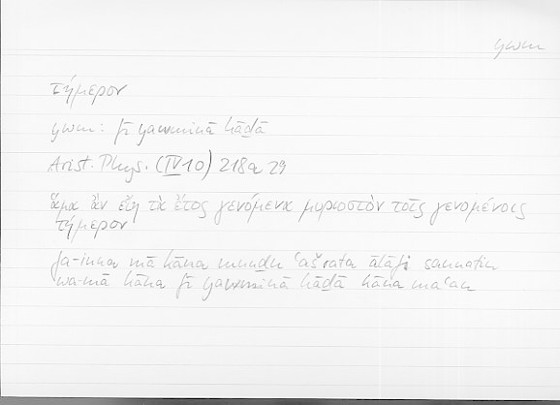 ywm
τήμερον
ywm: fī yawminā hāḏā
Arist. Phys. (IV 10) 218a 29
ἅμα ἂν εἴη τὰ ἔτος γενόμενα μυριοστὸν τοῖς γενομένοις
τήμερον
fa-inna mā kāna munḏu ʿašrata ālāfi sanatin
wa-mā kāna fī yawminā hāḏā kāna maʿan